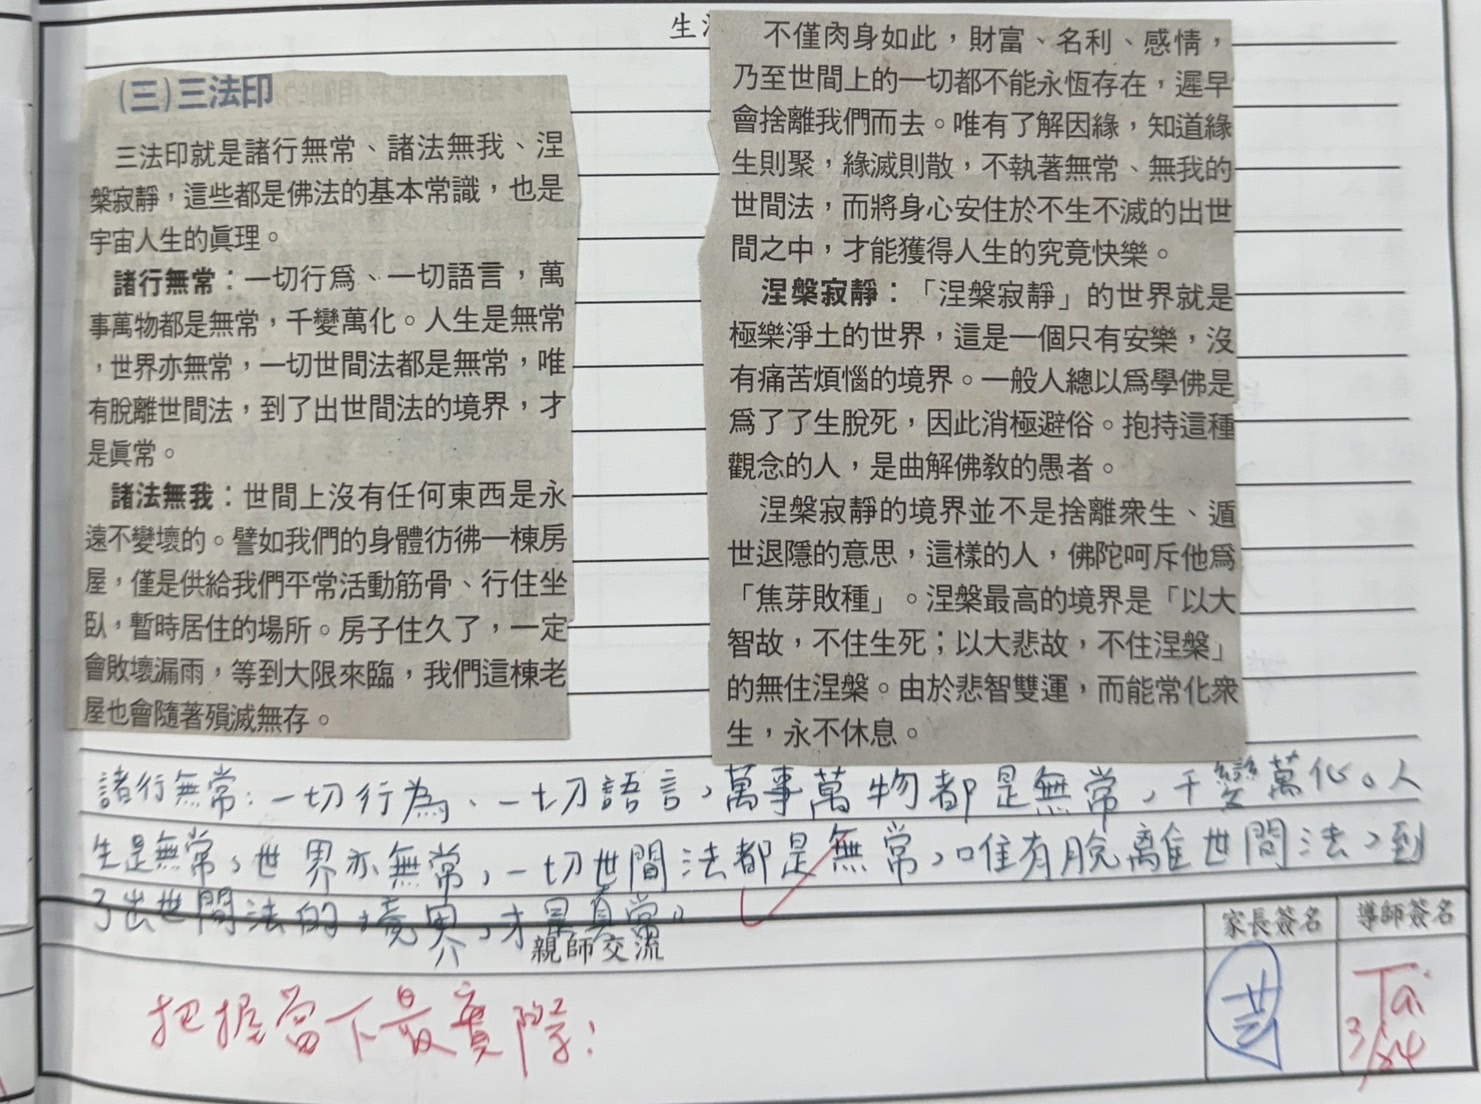 生
(三)三法印
三法印就是諸行無常、諸法無我、涅
槃寂靜，這些都是佛法的基本常識，也是
宇宙人生的眞理。
諸行無常：一切行爲、一切語言，萬
事萬物都是無常，千變萬化。人生是無常
，世界亦無常，一切世間法都是無常，唯
有脫離世間法，到了出世間法的境界，才
是眞常。
諸法無我：世間上沒有任何東西是永
遠不變壞的。譬如我們的身體彷彿一棟房
屋，僅是供給我們平常活動筋骨、行住坐
臥，暫時居住的場所。房子住久了，一定
會敗壞漏雨，等到大限來臨，我們這棟老
屋也會隨著殞滅無存。
不僅肉身如此，財富、名利、感情，
乃至世間上的一切都不能永恆存在，遲早
會捨離我們而去。唯有了解因緣，知道緣
生則聚，緣滅則散，不執著無常、無我的
世間法，而將身心安住於不生不滅的出世
間之中，才能獲得人生的究竟快樂。
涅槃寂靜：「涅槃寂靜」的世界就是
極樂淨土的世界，這是一個只有安樂，沒
有痛苦煩惱的境界。一般人總以爲學佛是
爲了了生脫死，因此消極避俗。抱持這種
觀念的人，是曲解佛教的愚者。
涅槃寂靜的境界並不是捨離衆生、遁
世退隱的意思，這樣的人，佛陀呵斥他爲
「焦芽敗種」。涅槃最高的境界是「以大
智故，不住生死；以大悲故，不住涅槃」
的無住涅槃。由於悲智雙運，而能常化衆
生，永不休息。
諸行無常：一切行為、一切語言，萬事萬物都是無常，千變萬化。人
生是無常，世界亦無常，一切世間法都是無常，唯有脫離世間法，到
了出世間法的境界，才是真常。
親師交流
家長簽名
導師簽名
把握當下最實際！
Tai
3/24